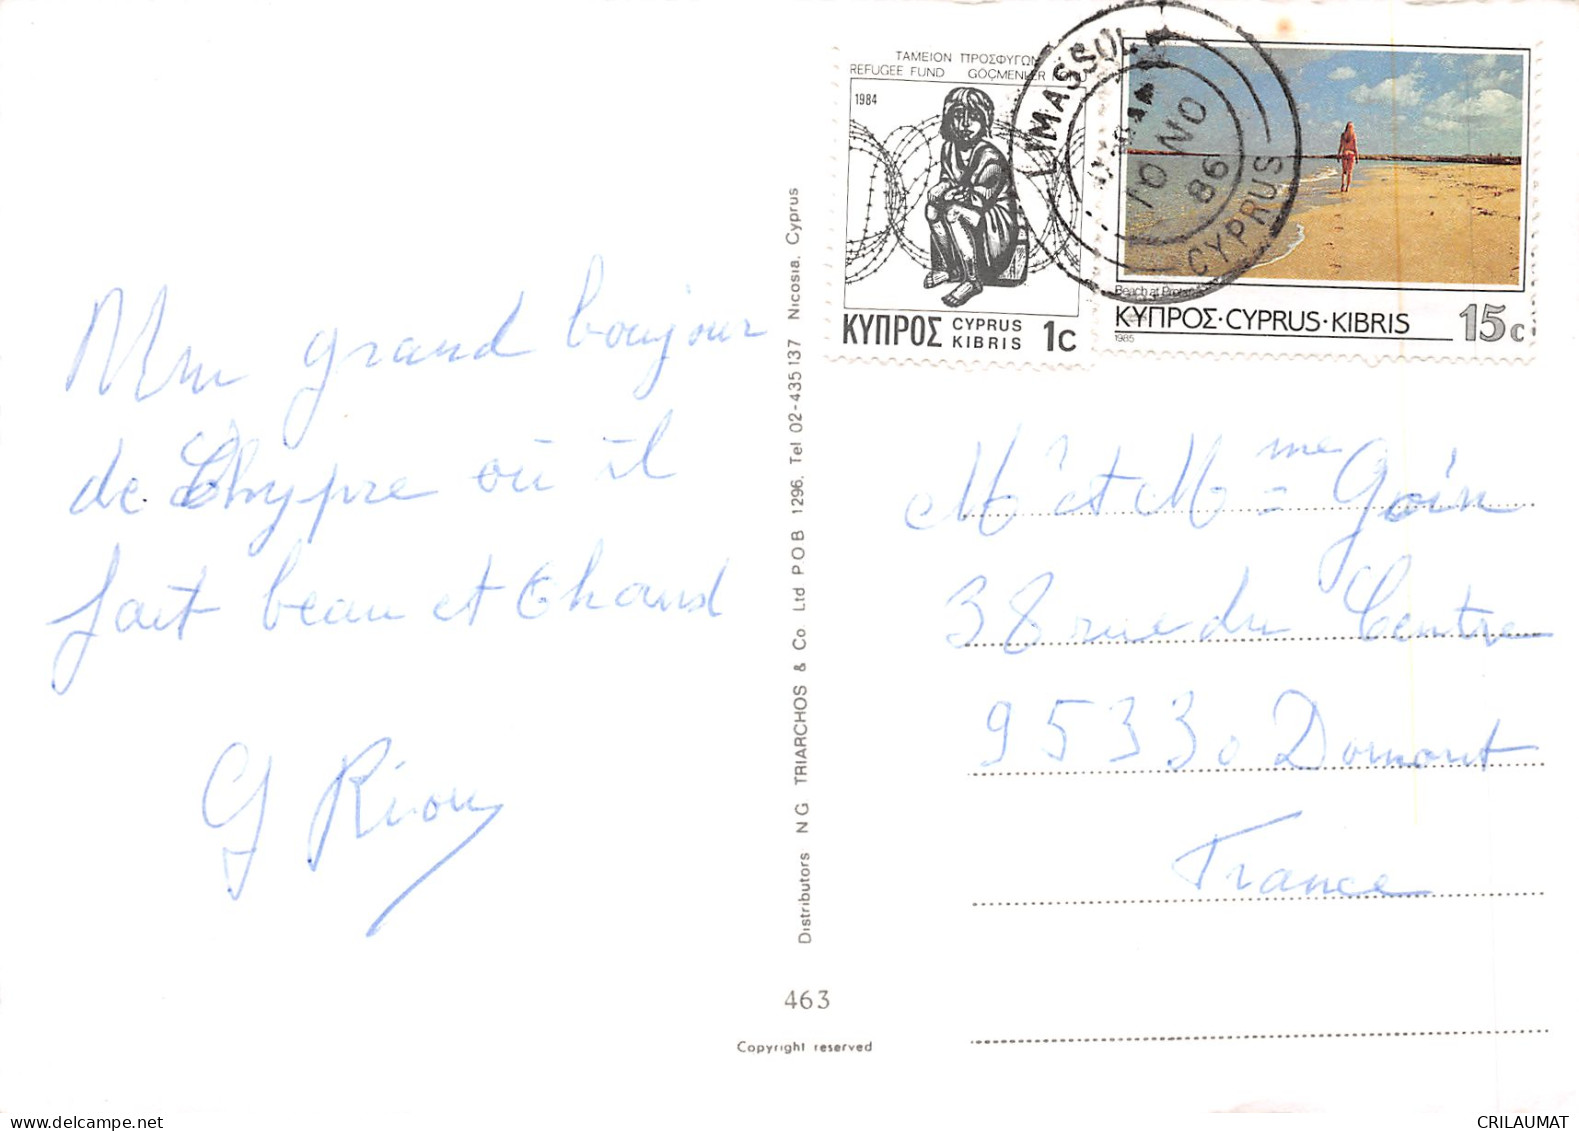 Un grand bonjour
de Chypre où il
fait beau et Chaud
G Riou
Distributors N G TRIARCHOS & Co. Ltd P.O.B 1296. Tel 02-435137 Nicosia. Cyprus
463
Copyright reserved
ΤΑΜΕΙΟΝ ΠΡΟΣΦΥΓΩΝ
REFUGEE FUND GÖÇMENLER
1984
ΚΥΠΡΟΣ CYPRUS KIBRIS 1c
LIMASSOL
10 NO
86
CYPRUS
Beach at
ΚΥΠΡΟΣ·CYPRUS·KIBRIS 15c
1985
Mr et Mme Goin
38 rue du Centre
95330 Domont
France
CRILAUMAT